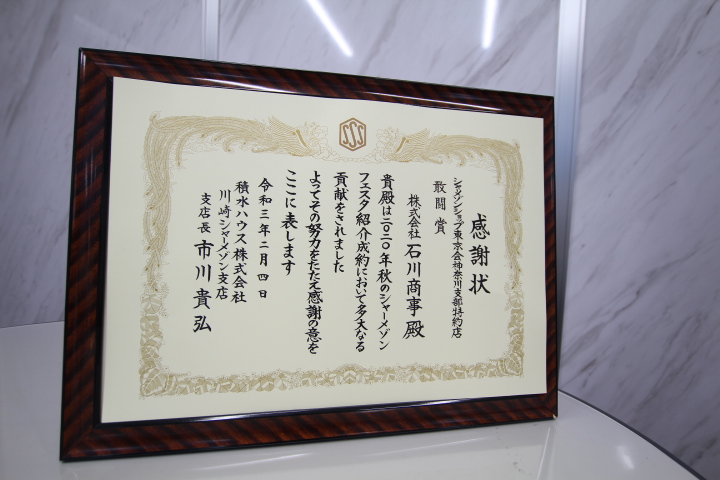 SSS
感謝状
シャーメゾンショップ東京会神奈川支部特約店
敢闘賞
株式会社 石川商事 殿
貴殿は二〇二〇年秋のシャーメゾン
フェスタ紹介成約において多大なる
貢献をされました
よってその努力をたたえ感謝の意を
ここに表します
令和三年二月四日
積水ハウス株式会社
川崎シャーメゾン支店
支店長 市川貴弘